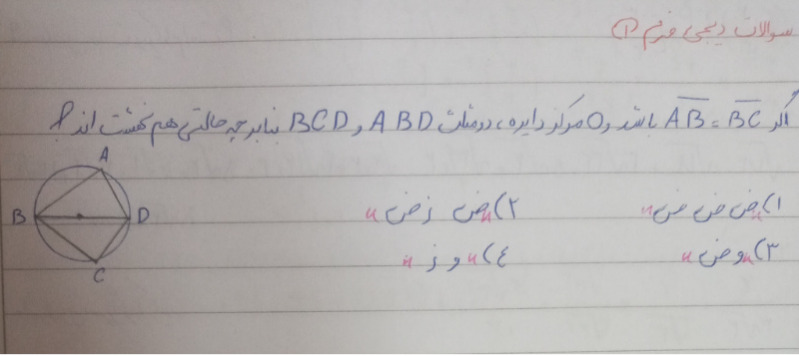 سوالات دیجی فرم ①
اگر AB = BC باشد و O مرکز دایره، دو مثلث ABD و BCD بنابر چه حالتی هم نهشت اند؟
۱) «ض ض ض» ۲) «ض ز ض»
۳) «وض» ۴) «و ز»
A
B D
C